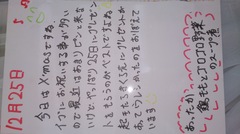 12月25日
今日はXmasですね。
イブにお祝いする事が多い
ので最近はあまりピンと来な
いけど、やっぱり25日にプレゼン
トをもらうのがベストですね
起きたらまくら元にプレゼントが
あってうれしかったのをおぼえて
います
あったか
鶏ももとゴロゴロ野菜